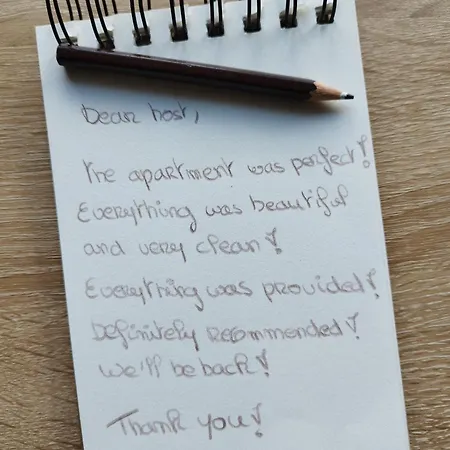 Dear host,
The apartment was perfect!
Everything was beautiful
and very clean!
Everything was provided!
Definitely recommended!
We'll be back!
Thank you!